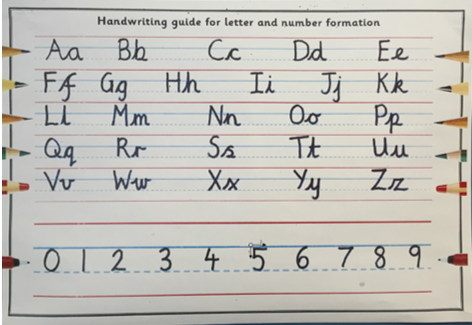 Handwriting guide for letter and number formation
Aa Bb Cc Dd Ee
Ff Gg Hh Ii Jj Kk
Ll Mm Nn Oo Pp
Qq Rr Ss Tt Uu
Vv Ww Xx Yy Zz
0 1 2 3 4 5 6 7 8 9